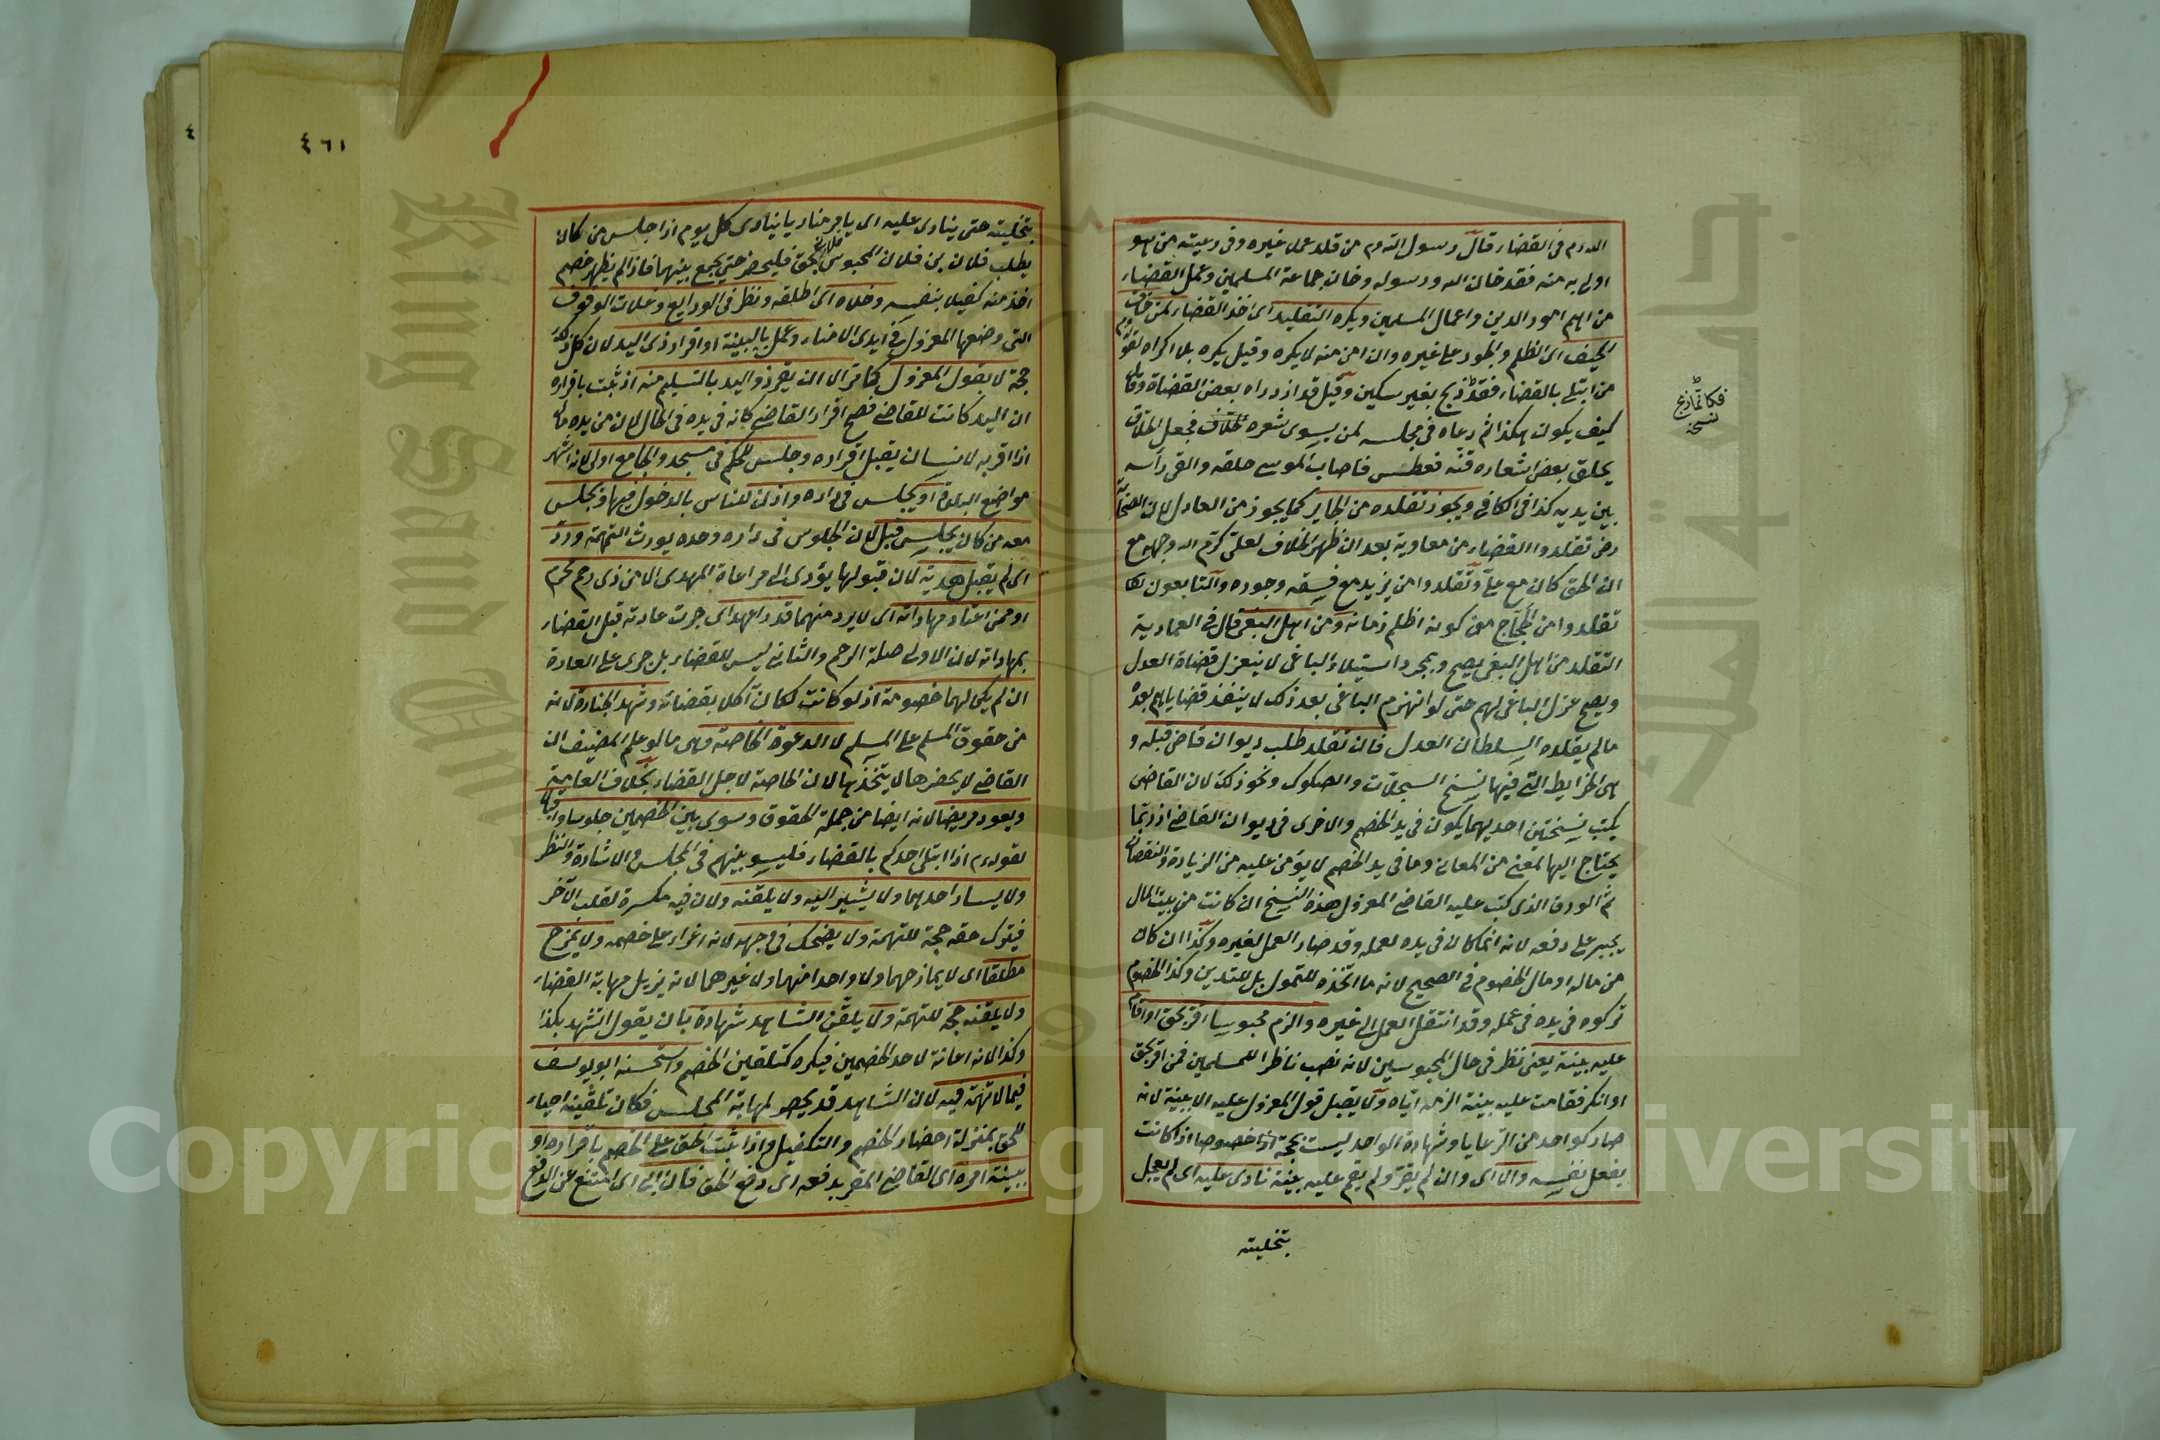 الله م في القضاء قال رسول الله م من قلد عمل غيره وفي رعيته من هو
اولى به منه فقد خان الله ورسوله وخان جماعة المسلمين وعمل القضاء
من اهم امور الدين واعمال المسلمين ويكره التقليد اى اخذ القضاء لمن خاف
الحيف اى الظلم والجور على غيره وان امن منه لا يكره وقيل يكره بلا اكراه لقوله م
من ابتلى بالقضاء فقد ذبح بغير سكين وقيل قد ازدراه بعض القضاة وقال
كيف يكون هكذا ثم دعاه في مجلسه لمن يسوى شعره فجعل الحلاق
يحلق بعض اشعار ذقنه فعطس فاصاب الموسى حلقه والقى رأسه
بين يديه كذا في الكافي ويجوز تقلده من الجاير كما يجوز من العادل لان الصحابة
رض تقلدوا القضاء من معاوية بعد ان ظهر الخلاف لعلى كرم الله وجهه مع
ان الحق كان مع على وتقلدوا من يزيد مع فسقه وجوره والتابعون
تقلدوا من الحجاج مع كونه اظلم زمانه ومن اهل البغى قال في العمادية
التقلد من اهل البغى يصح وبمجرد استيلاء الباغى لا ينعزل قضاة العدل
ويصح عزل الباغى لهم حتى لو انهزم الباغى بعد ذلك لا ينفذ قضاياهم بعده
مالم يقلده السلطان العدل فان تقلد طلب ديوان قاض قبله و
هى الخرايط التى فيها نسخ السجلات والصكوك ونحو ذلك لان القاضى
يكتب نسختين احديهما يكون في يد الخصم والاخرى في ديوان القاضى اذ ربما
يحتاج اليها لمعنى من المعانى وما في يد الخصم لا يؤمن عليه من الزيادة والنقصان
ثم الورق الذى كتب عليه القاضى المعزول هذه النسخ ان كانت من بيت المال
يجبر على دفعه لانه انما كان في يده لعمله وقد صار العمل لغيره وكذا ان كان
من ماله او مال الخصوم في الصحيح لانه ما اتخذه للتمول بل للتدين وكذا الخصوم
تركوه في يده في عمله وقد انتقل العمل الى غيره والزم محبوسا اقر بحق او اقام
عليه بينة يعنى نظر في حال المحبوسين لانه نصب ناظرا للمسلمين فمن اقر بحق
او انكر فقامت عليه بينة الزمه اياه ولا يقبل قول المعزول عليه الا ببينة لانه
صار كواحد من الرعايا وشهادة الواحد ليست بحجة خصوصا اذا كانت
بفعل نفسه والا اى وان لم يقر ولم يقم عليه بينة نادى عليه اى لم يعجل
بتخليته
فكانما ذبح
نسخة
٤٦١
بتخليته حتى ينادى عليه اى يامر مناديا ينادى كل يوم اذا جلس من كان
يطلب فلان بن فلان المحبوس الفلانى بحق فليحضر حتى يجمع بينهما فاذا لم يظهر خصم
اخذ منه كفيلا بنفسه وخلاه اى اطلقه ونظر في الودايع وغلات الوقوف
التى وضعها المعزول في ايدى الامناء وعمل بالبينة او اقرار ذى اليد لان كل ذلك
حجة لا بقول المعزول كما مر الا ان يقر ذو اليد بالتسليم منه اذ ثبت باقراره
ان اليد كانت للقاضى فصح اقرار القاضى كانه في يده في الحال لان من يده مال
اذا اقر به لانسان يقبل اقراره وجلس للحكم في مسجد والجامع اولى لانه اشهر
مواضع البلدة او يجلس في داره واذن للناس بالدخول فيها ويجلس
معه من كان يجلس قبل لان الجلوس في داره وحده يورث التهمة ورد
اى لم يقبل هدية لان قبولها يؤدى الى مراعاة المهدى الا من ذى رحم محرم
او ممن اعتاد مهاداته اى لا يرد منهما قدرا عهد اى جرت عادته قبل القضاء
بمهاداته لان الاولى صلة الرحم والثانى ليس للقضاء بل جرى على العادة
ان لم يكن لهما خصومة اذ لو كانت لكان آكلا بقضائه وشهد الجنازة لانه
من حقوق المسلم على المسلم لا الدعوة الخاصة وهى ما لو علم المضيف ان
القاضى لا يحضرها لا يتخذها لان الخاصة لاجل القضاء بخلاف العامة
ويعود مريضا لانه ايضا من جملة الحقوق وسوى بين الخصمين جلوسا واقبالا
لقوله م اذا ابتلى احدكم بالقضاء فليسو بينهم في المجلس والاشارة والنظر
ولا يسار احدهما ولا يشير اليه ولا يلقنه ولان فيه مكسرة لقلب الآخر
فيترك حقه حجة للتهمة ولا يضحك في وجهه لانه اغراء على خصمه ولا يمزح
مطلقا اى لا يمازحهما ولا واحدا منهما ولا غيرهما لانه يزيل مهابة القضاء
ولا يلقنه حجة للتهمة ولا يلقن الشاهد شهادة بان يقول اتشهد بكذا
وكذا لانه اعانة لاحد الخصمين فيكره كتلقين الخصم واستحسنه ابو يوسف
فيما لا تهمة فيه لان الشاهد قد يحصر لمهابة المجلس فكان تلقينه احياء
للحق بمنزلة احضار الخصم والتكفيل واذا ثبت الحق على الخصم باقراره او
ببينة امره اى القاضى المقر بدفعه اى دفع الحق فان ابى اى امتنع عن الدفع
Copyright © King Saud University